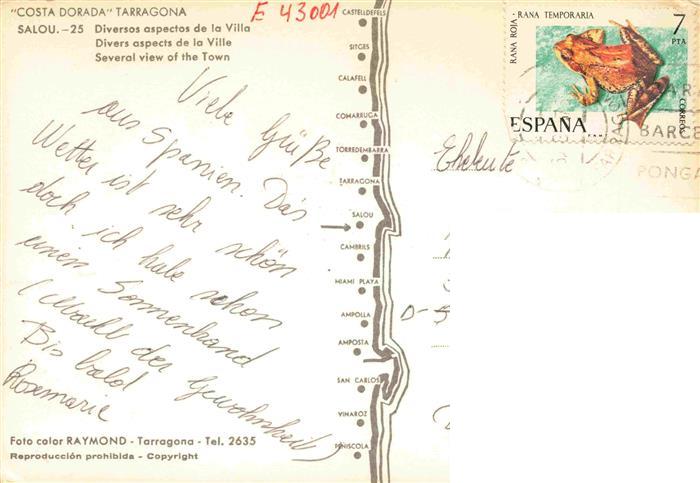 "COSTA DORADA" TARRAGONA
SALOU.-25 Diversos aspectos de la Villa
Divers aspects de la Ville
Several view of the Town
E 43001
Viele Grüße
aus Spanien. Das
Wetter ist sehr schön
doch ich habe schon
einen Sonnenbrand
(Macht der Gewohnheit)
Bis bald
Rosemarie
Foto color RAYMOND - Tarragona - Tel. 2635
Reproducción prohibida - Copyright
CASTELLDEFELS
SITGES
CALAFELL
COMARRUGA
TORREDEMBARRA
TARRAGONA
SALOU
CAMBRILS
MIAMI PLAYA
AMPOLLA
AMPOSTA
SAN CARLOS
VINAROZ
PEÑISCOLA
Eheleute
D-5
RANA ROJA - RANA TEMPORARIA
7
PTA
CORREOS
ESPAÑA
BARCE
PONGA